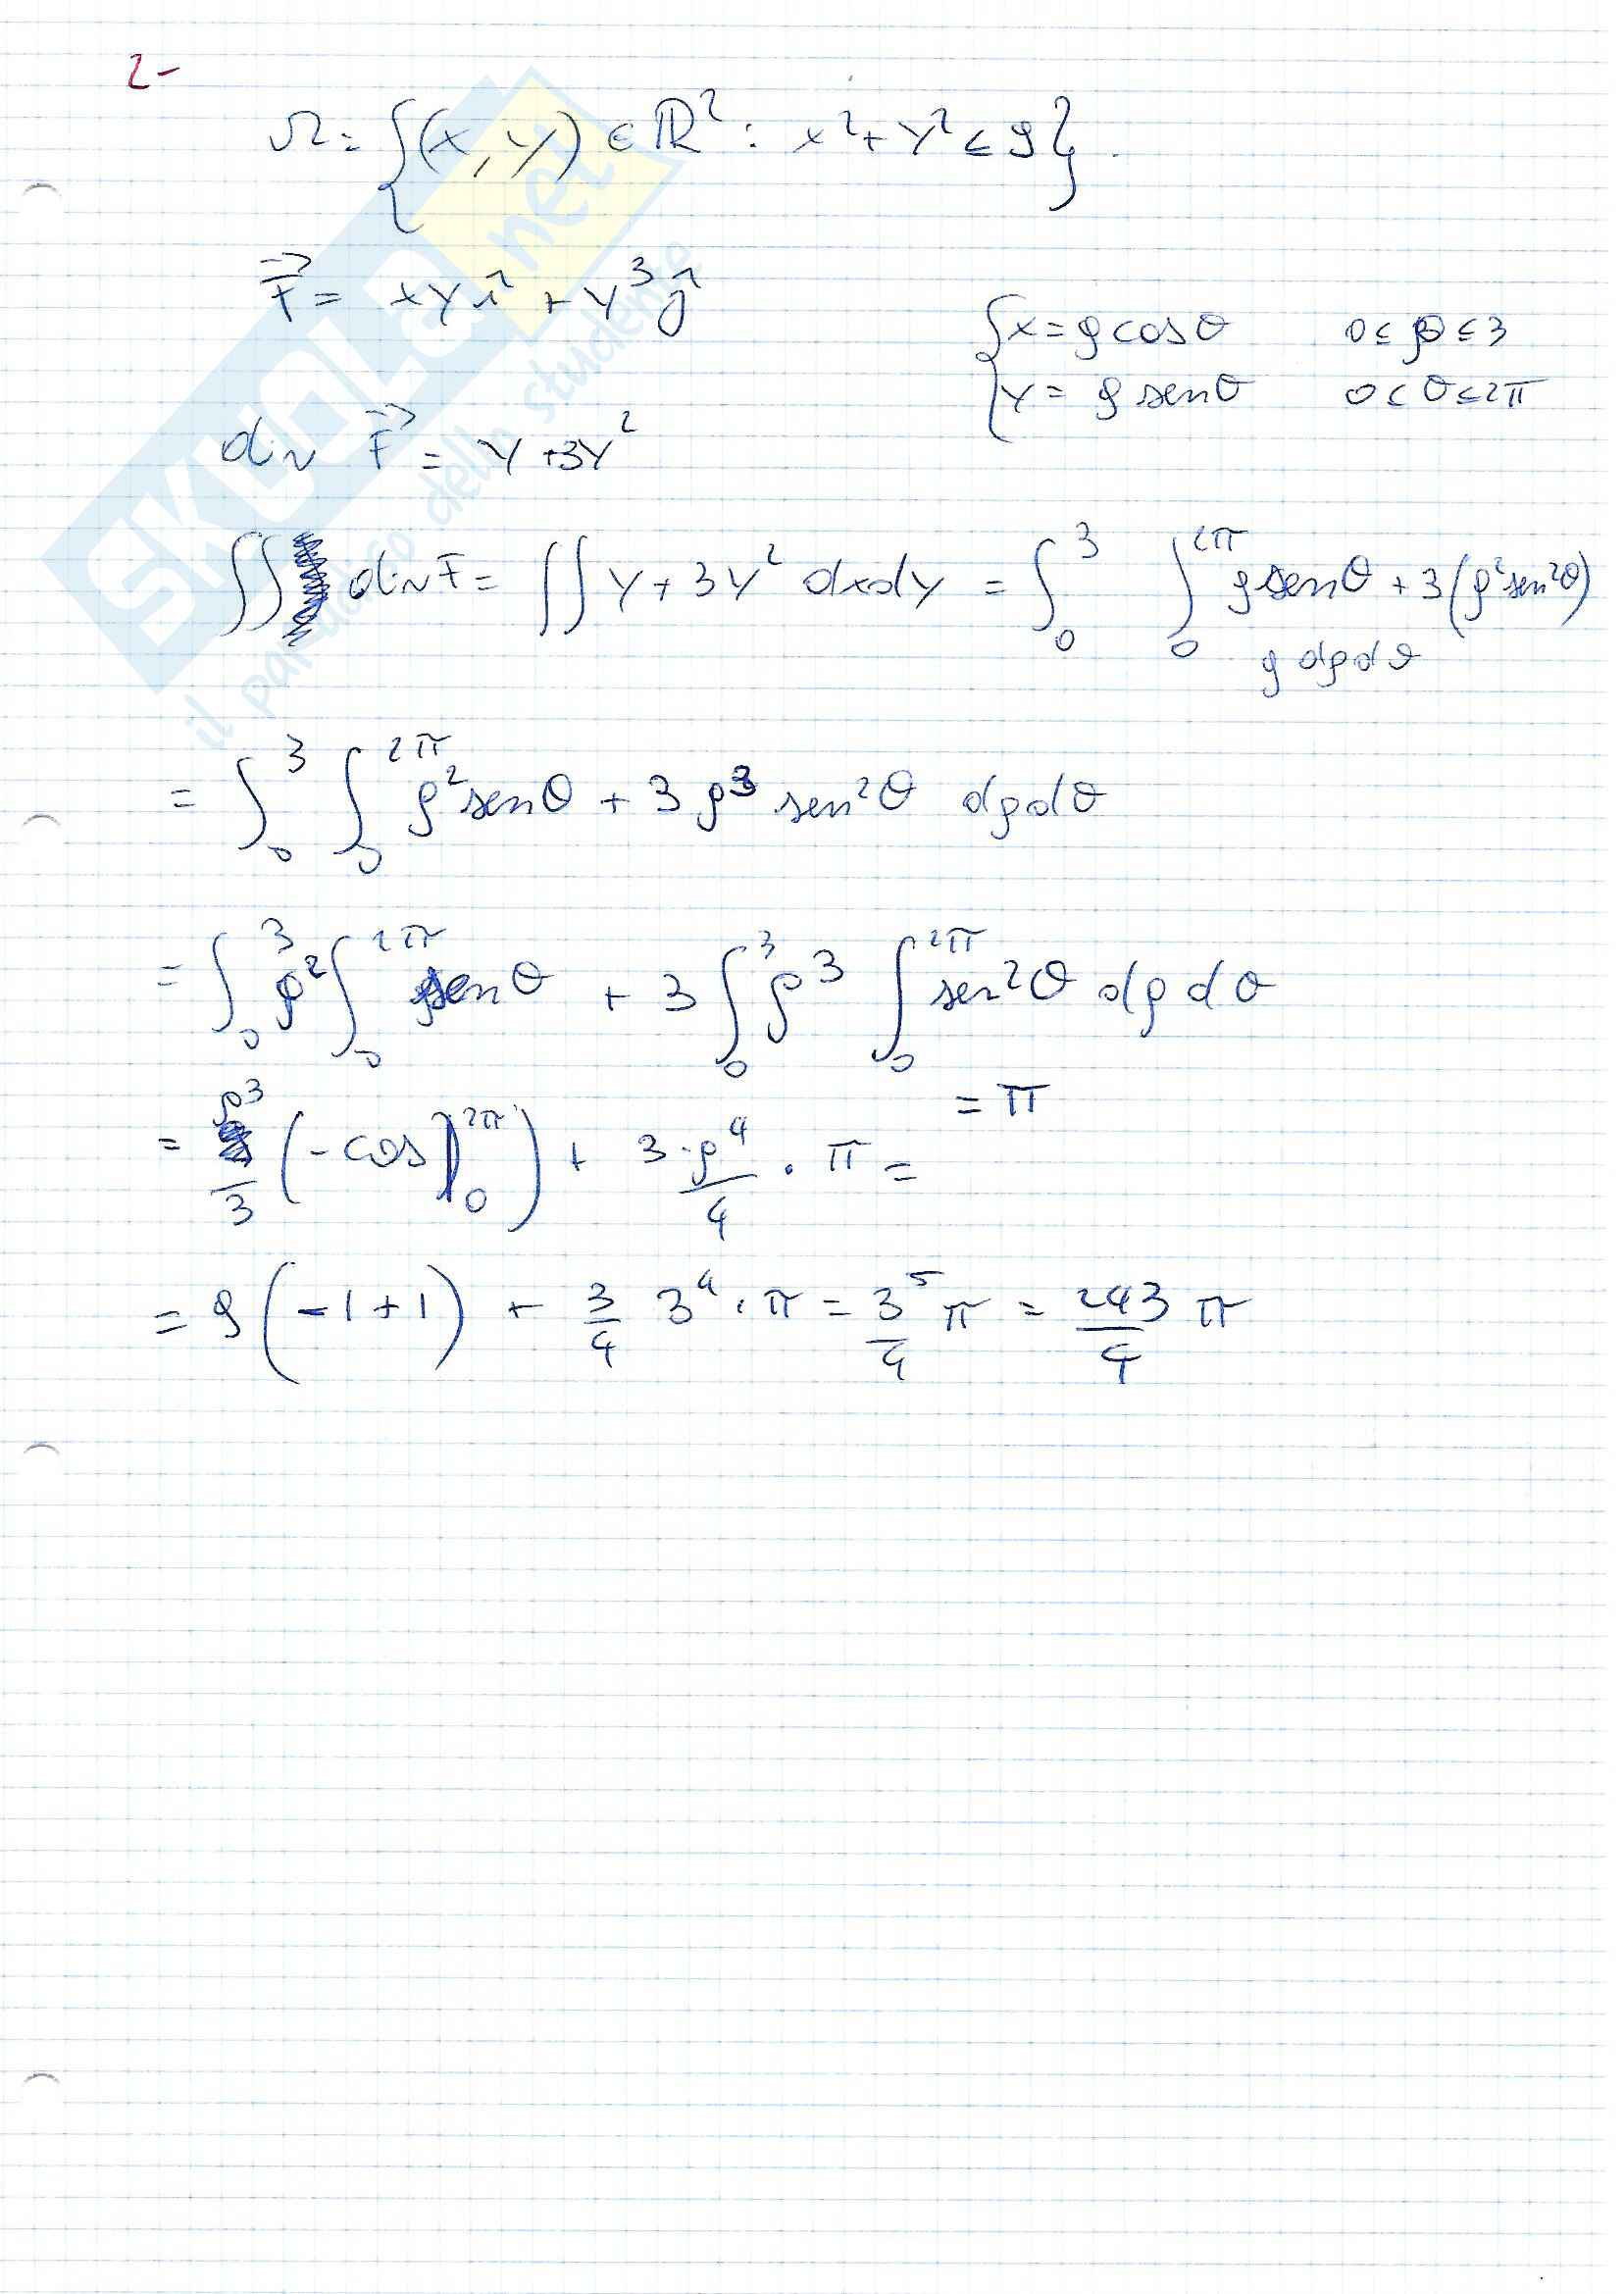 2-
Ω = {(x, y) ∈ ℝ² : x² + y² ≤ 9}.
F⃗ = xy î + y³ ĵ
{x = ρ cos θ 0 ≤ ρ ≤ 3
{y = ρ sen θ 0 ≤ θ ≤ 2π
div F⃗ = y + 3y²
∫∫ div F = ∫∫ y + 3y² dxdy = ∫₀³ ∫₀^2π ρ sen θ + 3(ρ² sen² θ)
ρ dρ dθ
= ∫₀³ ∫₀^2π ρ² sen θ + 3ρ³ sen² θ dρ dθ
= ∫₀³ ρ² ∫₀^2π sen θ + 3 ∫₀³ ρ³ ∫₀^2π sen² θ dρ dθ
= π
= ρ³/3 (-cos |₀^2π) + 3·ρ⁴/4 · π =
= 9 (-1+1) + 3/4 3⁴ · π = 3⁵/4 π = 243/4 π
SKUOLA.net
il paradiso dello studente